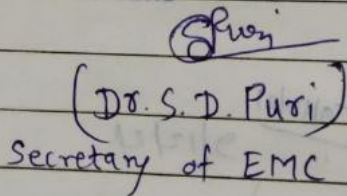 (Dr. S. D. Puri)
Secretary of EMC